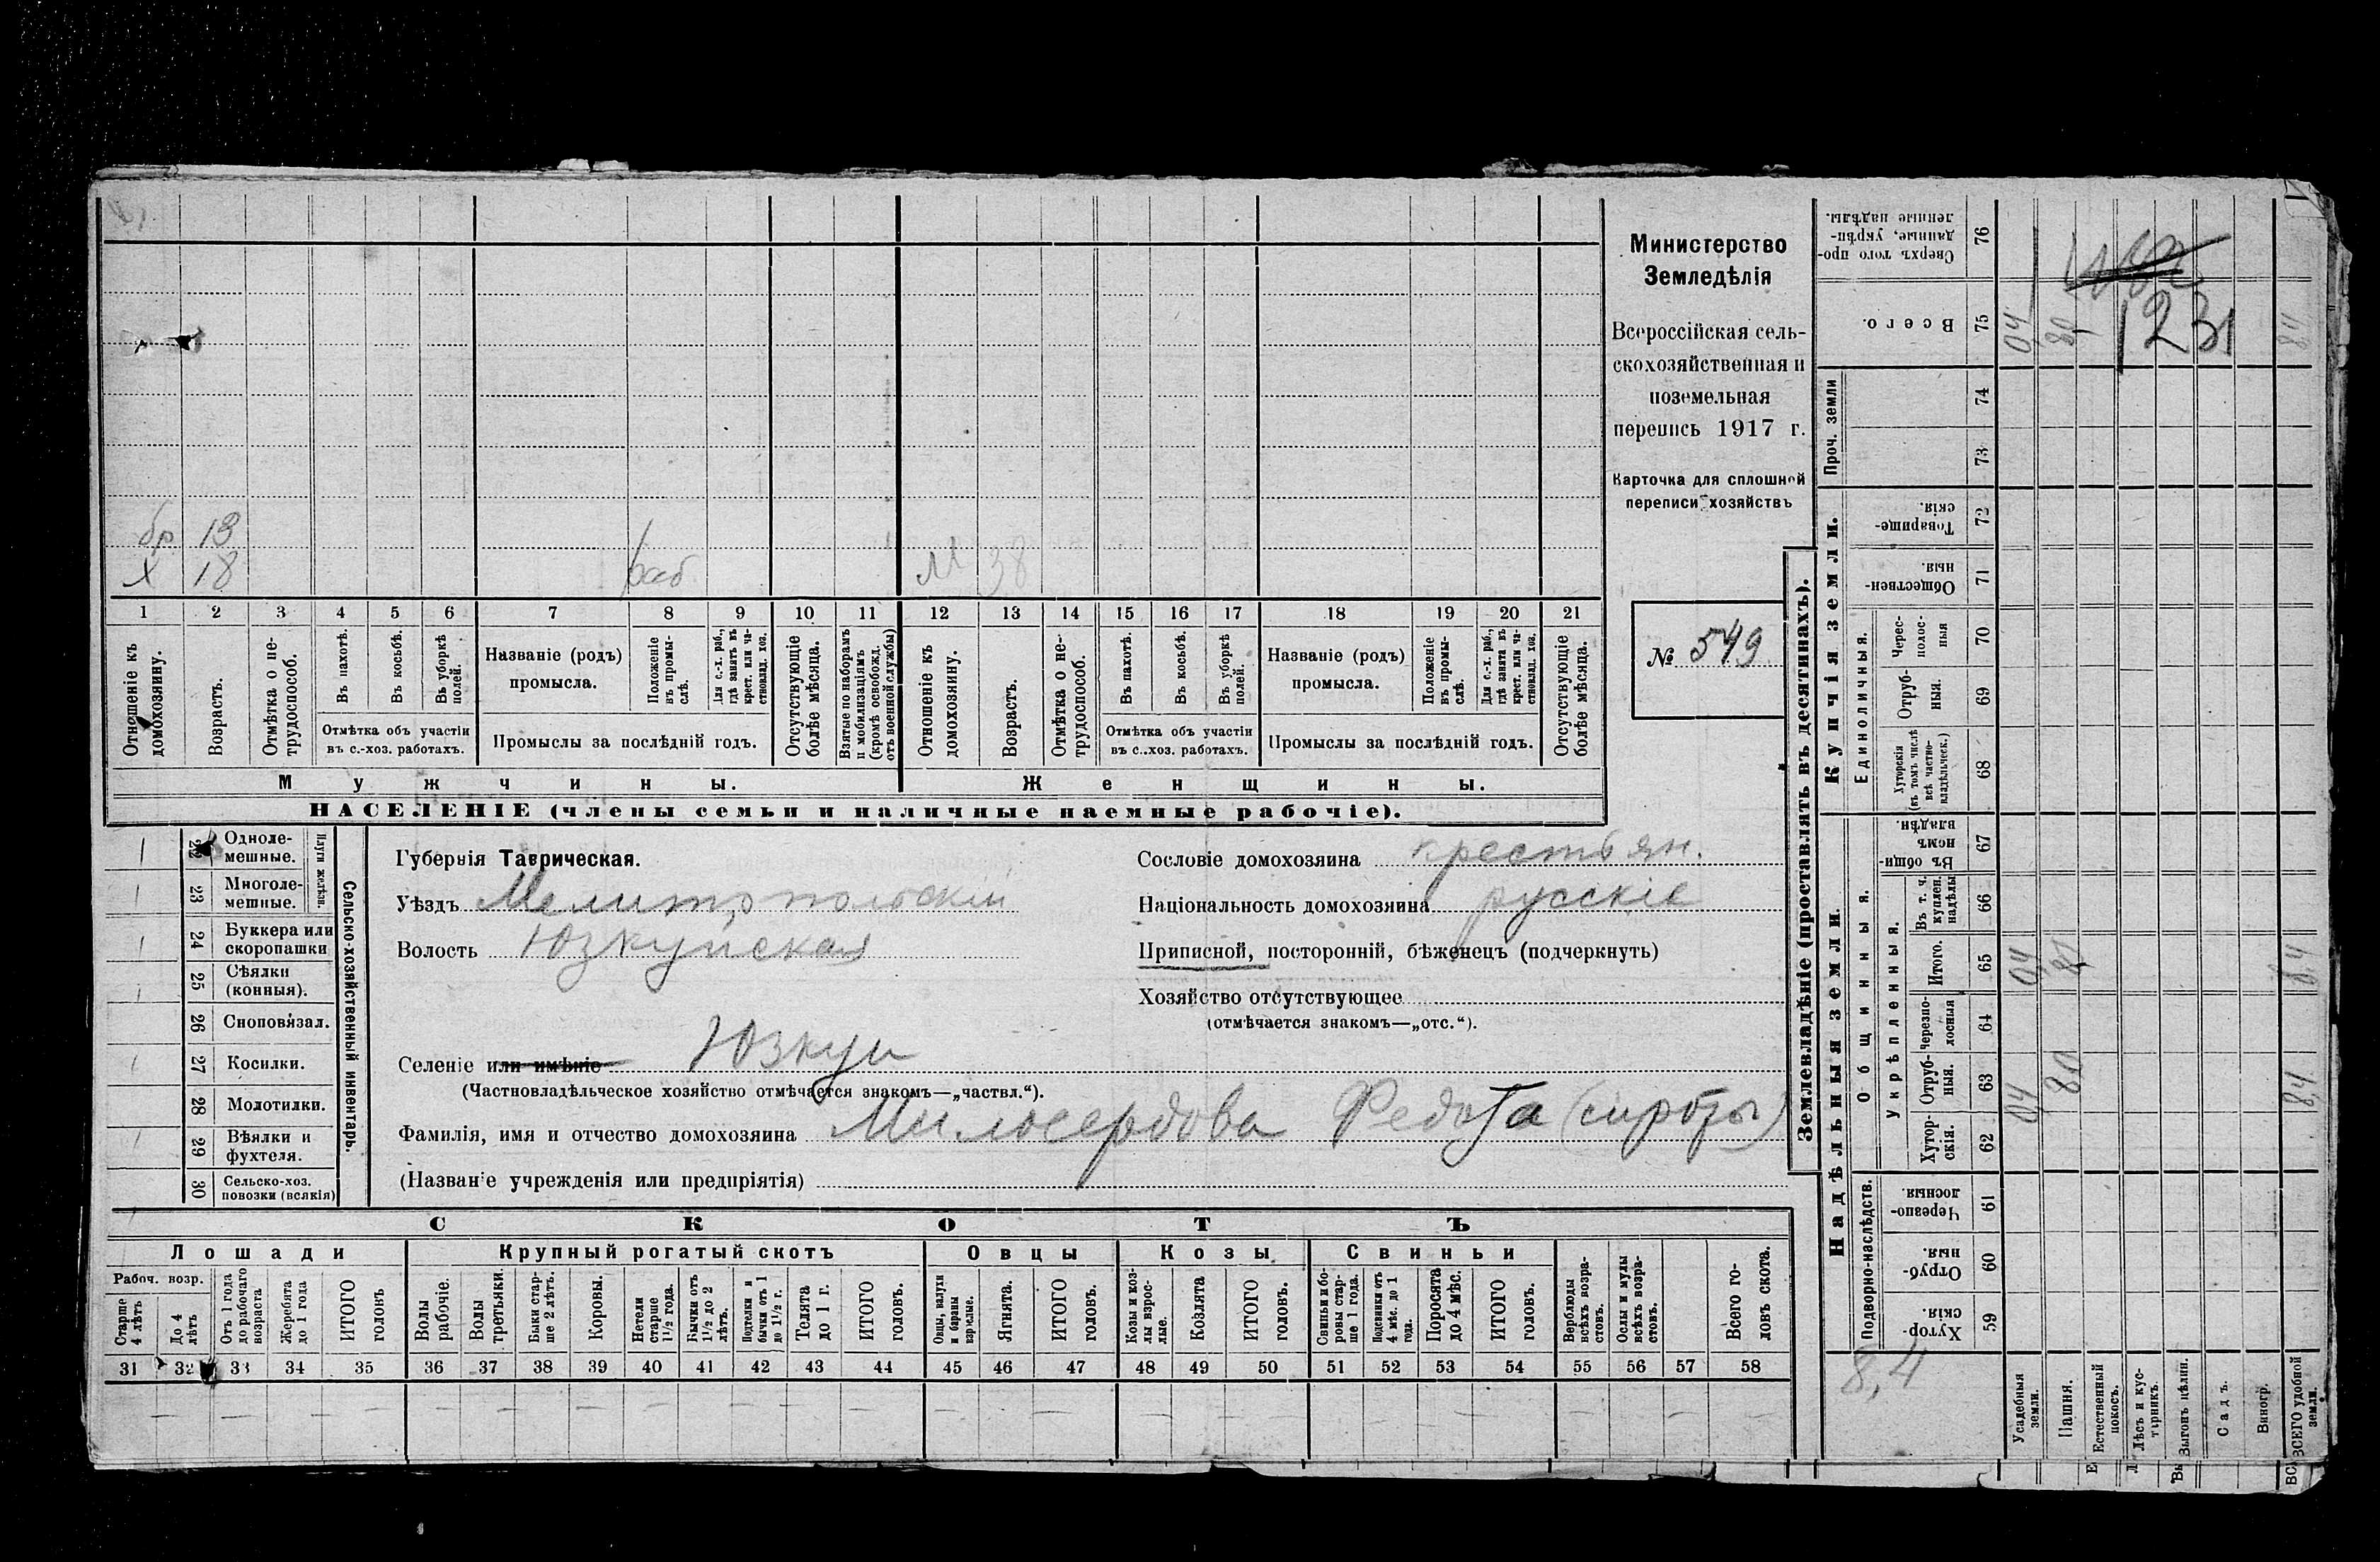 Министерство
Земледѣлія
Всероссійская сель-
скохозяйственная и
поземельная
перепись 1917 г.
Карточка для сплошной
переписи хозяйствъ
№ 549
бр 13
Х 18 раб М 38
1 2 3 4 5 6 7 8 9 10 11 12 13 14 15 16 17 18 19 20 21
Отношеніе къ домохозяину.
Возрастъ.
Отмѣтка о не-трудоспособ.
Въ пахотѣ.
Въ косьбѣ.
Въ уборкѣ полей.
Отмѣтка объ участіи въ с.-хоз. работахъ.
Названіе (родъ) промысла.
Положеніе въ промы-слѣ.
Для с.-х. раб., гдѣ занятъ въ крест. или ча-стновлад. хоз.
Промыслы за послѣдній годъ.
Отсутствующіе болѣе мѣсяца.
Взятые по наборамъ и мобилизаціямъ (кромѣ освобожд. отъ военной службы)
Отношеніе къ домохозяину.
Возрастъ.
Отмѣтка о не-трудоспособ.
Въ пахотѣ.
Въ косьбѣ.
Въ уборкѣ полей.
Отмѣтка объ участіи въ с..хоз. работахъ.
Названіе (родъ) промысла.
Положеніе въ промы-слѣ.
Для с.-х. раб., гдѣ занята въ крест. или ча-стновлад. хоз.
Промыслы за послѣдній годъ.
Отсутствующіе болѣе мѣсяца.
Мужчины. Женщины.
НАСЕЛЕНІЕ (члены семьи и наличные наемные рабочіе).
22 Одноле-мешные.
23 Многоле-мешные.
Плуги желѣзн.
24 Буккера или скоропашки
25 Сѣялки (конныя).
26 Сноповязал.
27 Косилки.
28 Молотилки.
29 Вѣялки и фухтеля.
30 Сельско-хоз. повозки (всякія)
Сельско-хозяйственный инвентарь.
Губернія Таврическая.
Уѣздъ Мелитопольскій
Волость Юзкуйская
Селеніе или имѣніе Юзкуи
(Частновладѣльческое хозяйство отмѣчается знакомъ—„частвл.“).
Фамилія, имя и отчество домохозяина Милосердова Федота (сироты)
(Названіе учрежденія или предпріятія)
Сословіе домохозяина крестьян.
Національность домохозяина русскіе
Приписной, посторонній, бѣженецъ (подчеркнуть)
Хозяйство отсутствующее
(отмѣчается знакомъ—„отс.“).
СКОТЪ
Лошади Крупный рогатый скотъ Овцы Козы Свиньи
Рабоч. возр.
Старше 4 лѣтъ
До 4 лѣтъ
Отъ 1 года до рабочаго возраста
Жеребята до 1 года
ИТОГО головъ
Волы рабочіе.
Волы третьяки.
Быки стар-ше 2 лѣтъ.
Коровы.
Нетели старше 1½ года.
Бычки отъ 1½ до 2 лѣтъ.
Подтелки и бычки отъ 1 до 1½ г.
Телята до 1 г.
ИТОГО головъ.
Овцы, валухи и бараны взрослые.
Ягнята.
ИТОГО головъ.
Козы и коз-лы взрос-лые.
Козлята
ИТОГО головъ.
Свиньи и бо-ровы стар-ше 1 года.
Подсвинки отъ 4 мѣс. до 1 года.
Поросята до 4 мѣс.
ИТОГО головъ.
Верблюды всѣхъ возра-стовъ.
Ослы и мулы всѣхъ возра-стовъ.
Всего го-ловъ скота.
31 32 33 34 35 36 37 38 39 40 41 42 43 44 45 46 47 48 49 50 51 52 53 54 55 56 57 58
Землевладѣніе (проставлять въ десятинахъ).
Надѣльныя земли. Купчія земли. Проч. земли
Подворно-наслѣдств.
Хутор-скія. 59
Отруб-ныя. 60
Черезпо-лосныя. 61
Общинныя.
Укрѣпленныя.
Хутор-скія. 62
Отруб-ныя. 63 04 80 8,4
Черезпо-лосныя 64
Итого. 65 04 80 8.4
Въ т. ч. куплен. надѣлы 66
Въ общин-номъ владѣн. 67
Единоличныя.
Хуторскія (въ томъ числѣ всѣ частно-владѣльческ.) 68
Отруб-ныя. 69
Черес-полос-ныя 70
Обществен-ныя. 71
Товарище-скія. 72
73
74
Всего. 75 04 80 84
Сверхъ того про-данные, укрѣп-ленные надѣлы. 76
1231
8,4
Усадебныя земли.
Пашня.
Естественный покосъ.
Лѣсъ и кус-тарникъ.
Выгонъ цѣлин.
Садъ.
Виногр.
ВСЕГО удобной земли.